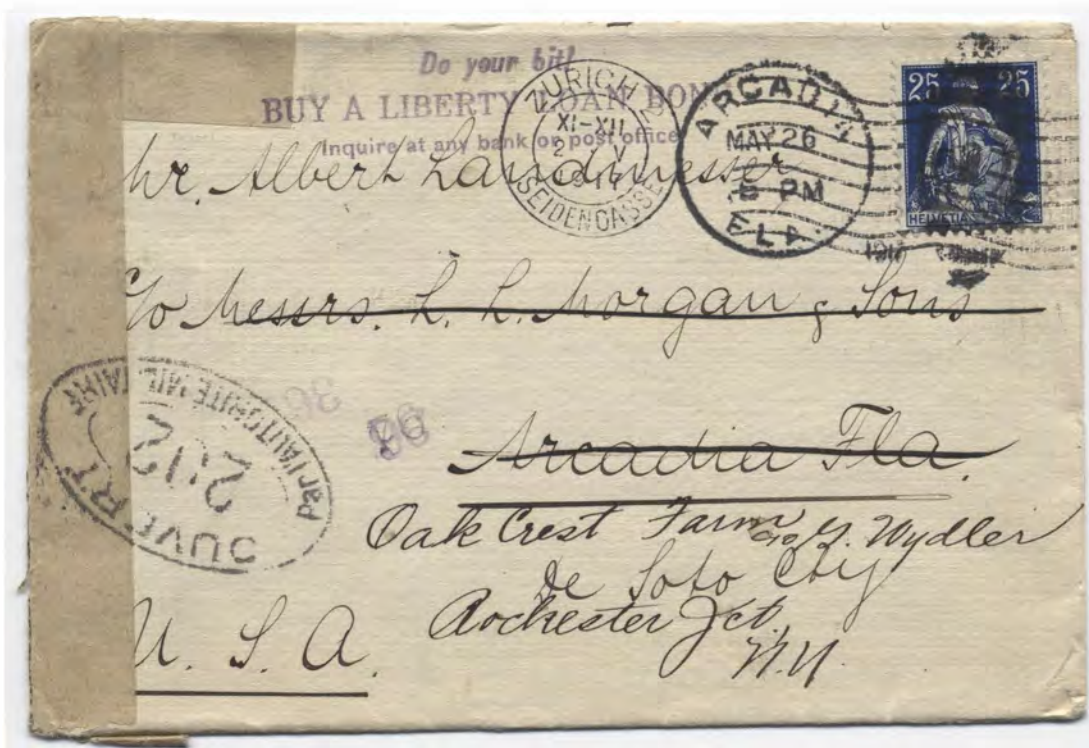 Do your bit!
BUY A LIBERTY LOAN BON
Inquire at any bank or post office
ZURICH
XI-XII
SEIDENGASSE
ARCADIA
MAY 26
PM
FLA
1917
25 25
HELVETIA
Mr. Albert Landmesser
c/o Messrs. L. L. Morgan & Sons
Arcadia Fla.
Oak Crest Farm c/o G. Wydler
De Soto City
Rochester Jct.
N.Y.
U. S. A.
OUVERT
Par l'AUTORITÉ MILITAIRE
212